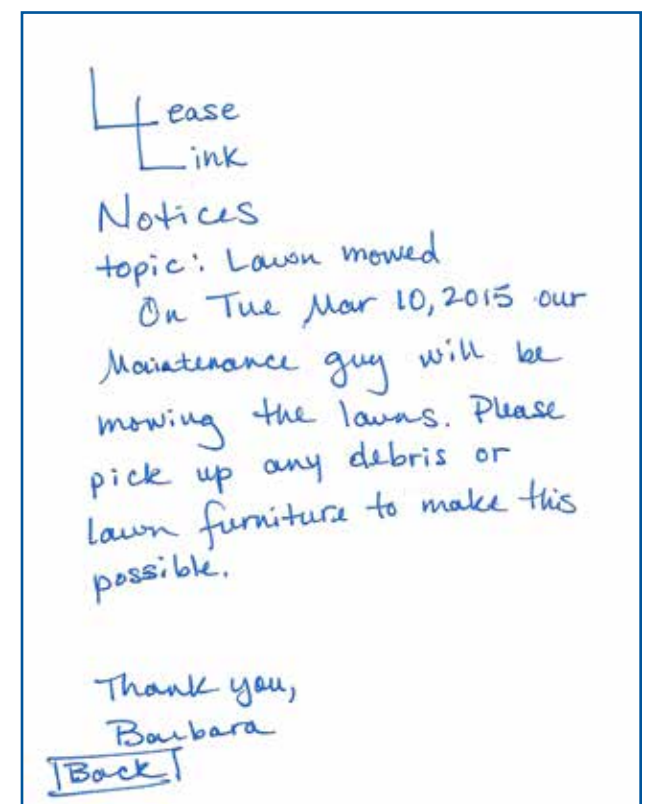 Lease
Link
Notices
topic: Lawn mowed
On Tue Mar 10, 2015 our
Maintenance guy will be
mowing the lawns. Please
pick up any debris or
lawn furniture to make this
possible.
Thank you,
Barbara
Back